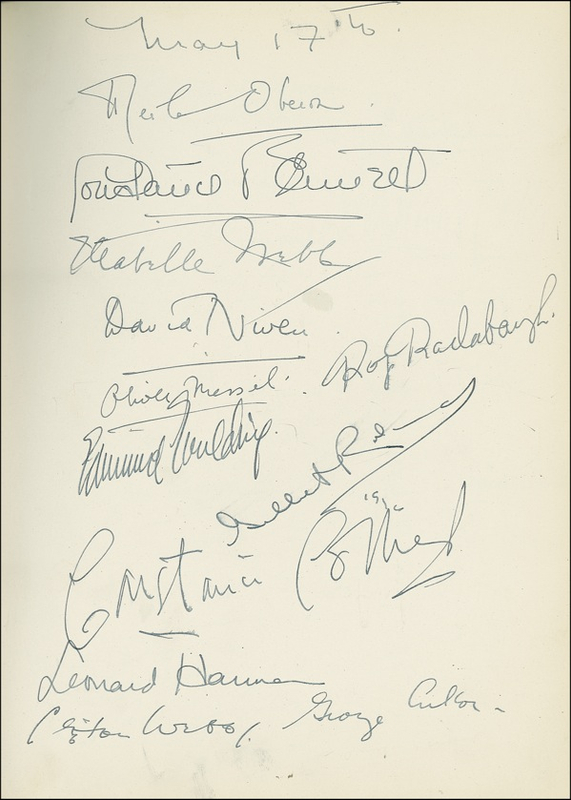 May 17th.
Merle Oberon.
Constance Bennett
Mabelle Webb
David Niven.
Oliver Messel. Roy Radabaugh.
Edmund Goulding.
Constance Collier
Leonard Hanna
Clifton Webb, George Cukor -